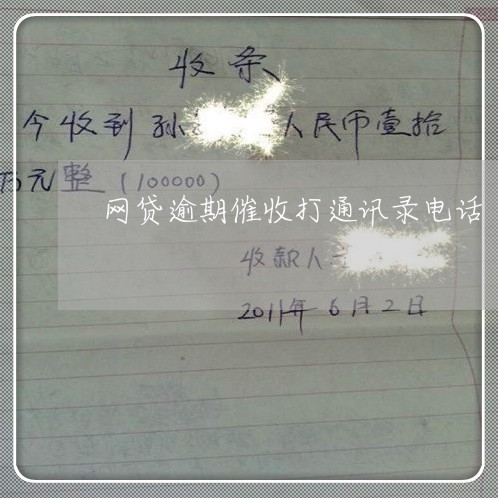 收条
今收到孙 人民币壹拾
万元整(100000)
网贷逾期催收打通讯录电话
收款人
2011年6月2日